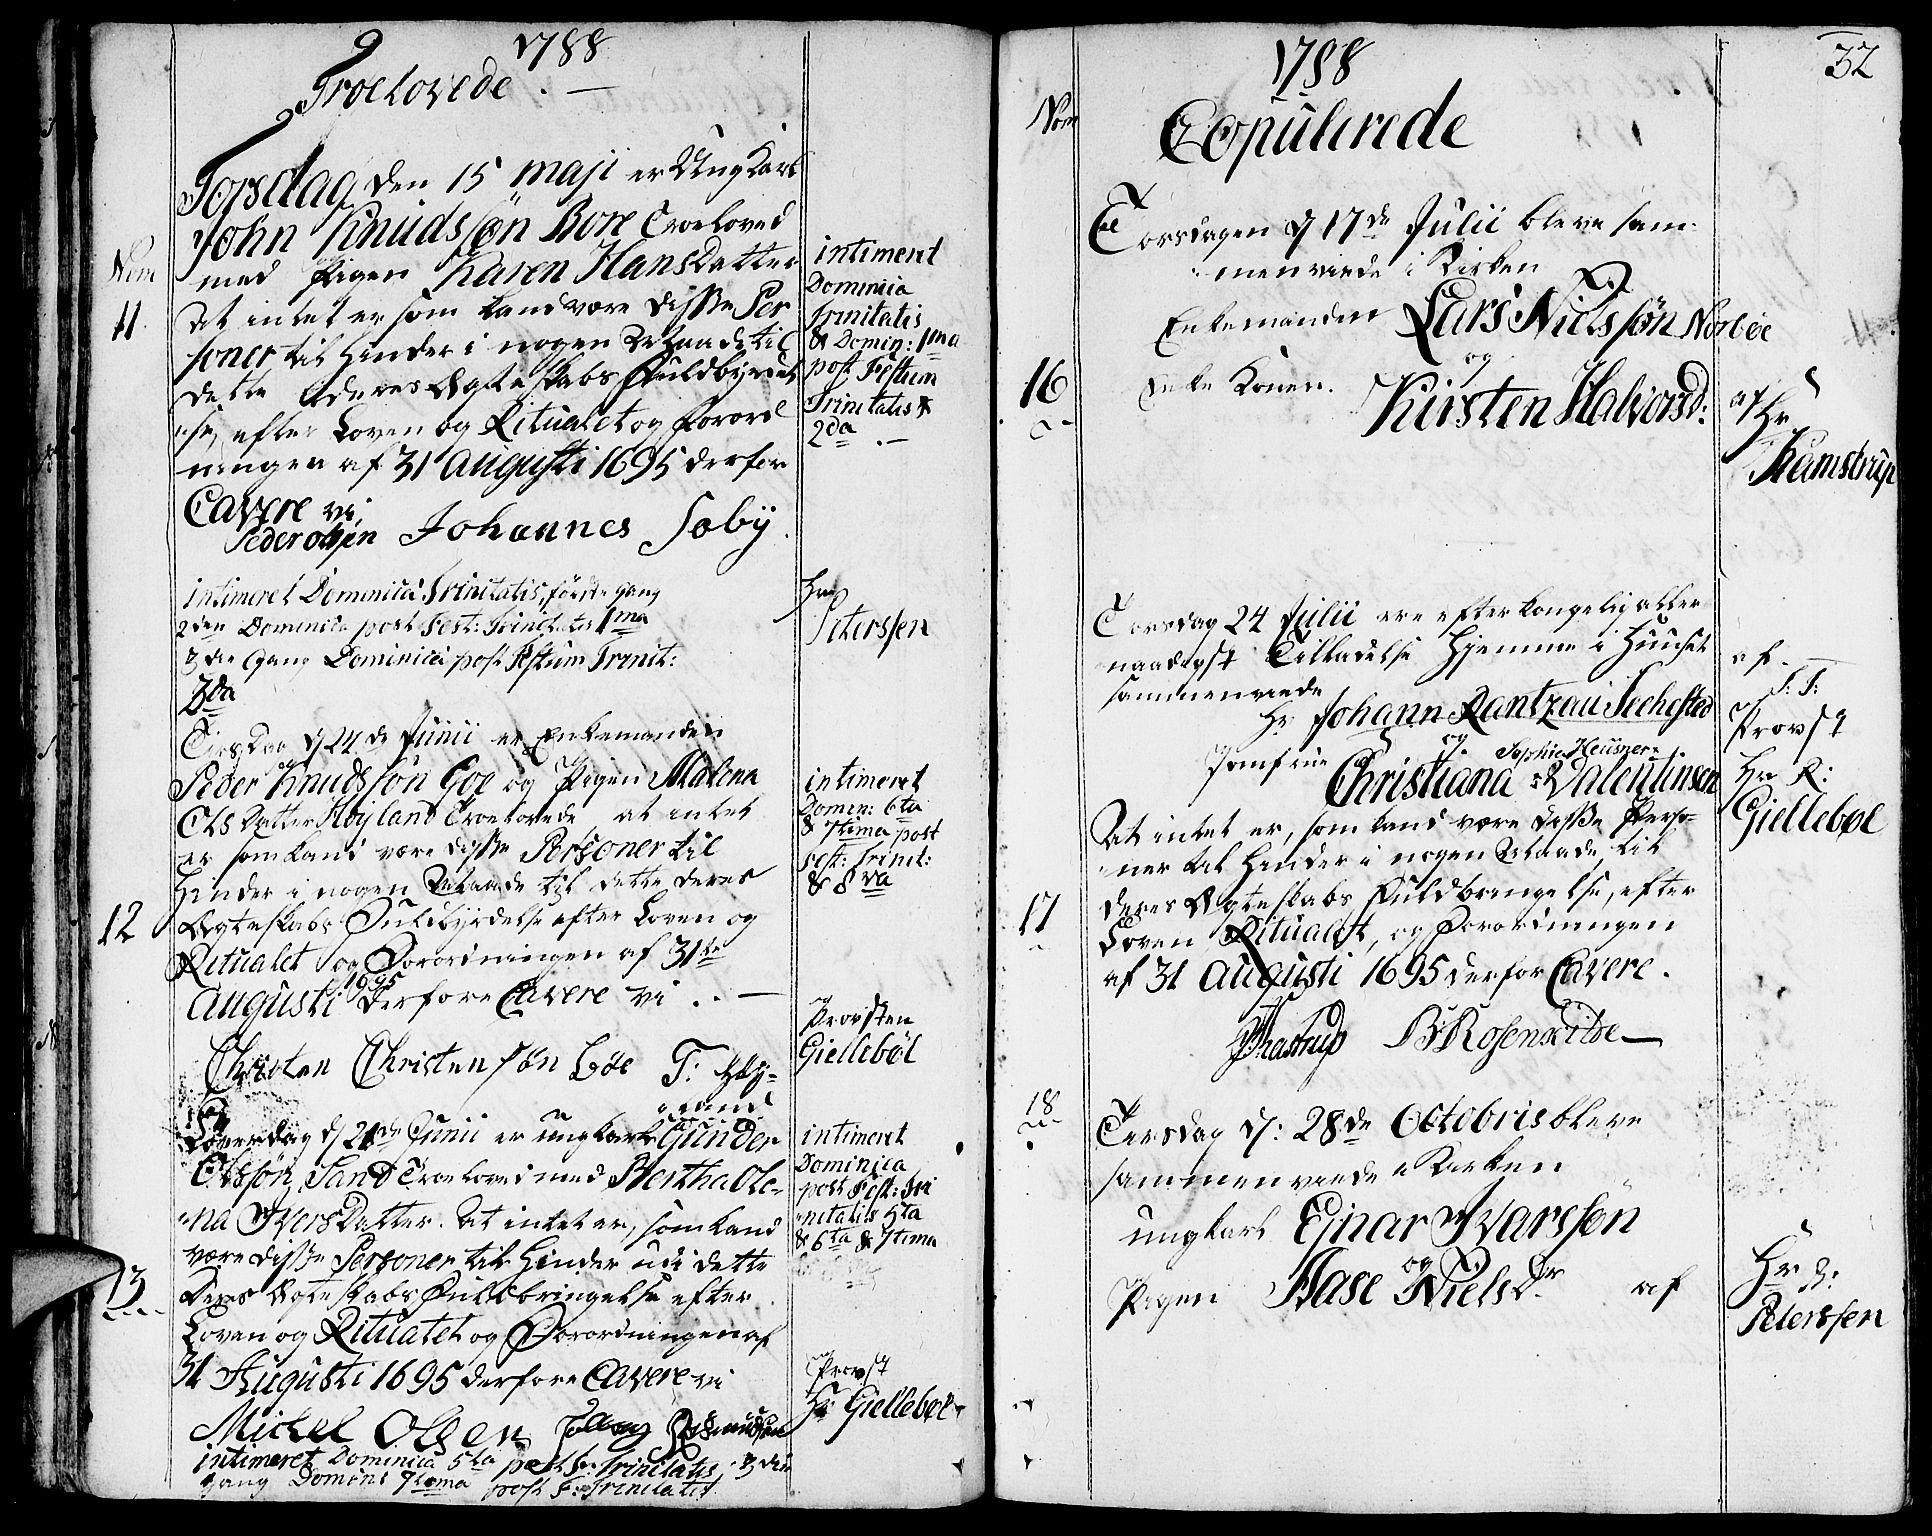 1788
Troelovede. —
Torsdag den 15 maji er Ung Karl
John Knudssøn Bore Troeloved
med Pigen Karen HansDatter
Nom
11.
At intet er som kand være disse Per
soner til Hinder i nogen Maade til
dette deres Ægteskabs Fuldbyrdel
se, efter Loven og Ritualet og Forord
ningen af 31 Augusti 1695 derfor
Cavere vi,
Peder olsen Johannes Soby
intimeret
Dominica
Trinitatis
& Domin: 1ma
post Festum
Trinitatis &
2da . —
intimeret Dominica Trinitatis, første gang
2den Dominica post Fest: Trinitatis 1ma
3die Gang Dominica post Festum Trinit:
2da
Hr
Peterssen
Tirsdag d 24de Junii er Enkemanden
Peder Knudssøn Goe og Pigen Malena
OlsDatter Høyland Troelovede at intet
er som kand være disse Personer til
Hinder i nogen Maade til dette deres
12
Ægteskabs Fuldbyrdelse efter Loven og
Ritualet og Forordningen af 31te
Augusti 1695 derfore Cavere vi . . —
Christen Christensøn Goe T: Høy-
land
intimeret
Domin: 6ta
& 7tima post
fest: Trinit:
& 8va
Provsten
Giellebøl
Løverdag d 28de Junii er ungkarl Gunder
Olssøn Sand Troeloved med Bertha Ole-
na IversDatter. At intet er, som kand
være disse Personer til Hinder udi dette
13
Deres Ægteskabs Fuldbringelse efter
Loven og Ritualet og Forordningen af
31 Augusti 1695 derfore Cavere vi
Mickel Olsen
intimeret Dominica 5ta post F: Trinitatis, 3die
gang Domini 7tima post F: Trinitatis
intimeret
Dominica
post Fest: Tri
nitatis 5ta
& 6ta & 7tima
Provst
Hr Giellebøl
32
1788
Nom
Copulerede
Torsdagen d 17de Julii bleve sam
menviede i Kirken
Enkemanden Lars Nielssøn Norbøe
og
16
Enke Konen. Kirsten Halvorsd:
af Hr
Kamstrup
Torsdag 24 Julii ere efter kongelig aller
naadigst Tilladelse Hjemme i Huuset
sammenviede
Hr Johann Rantzau Seehested
og
Jomfrue Christiana Sophia Heusner Valentinsen
At intet er, som kand være disse Perso-
ner til Hinder i nogen Maade, til
17
deres Ægteskabs Fuldbringelse, efter
Loven Ritualet, og Forordningen
af 31 Augusti 1695 derfor Cavere.
BRosenkilde —
af —
S: T:
Provst
Hr R:
Giellebøl
18
Tiersdag d: 28de Octobris bleve
sammenviede i Kirken
ungkarl Ejnar Ivarssøn
og
Pigen Aase Nielsdr af
Hr
Peterssen